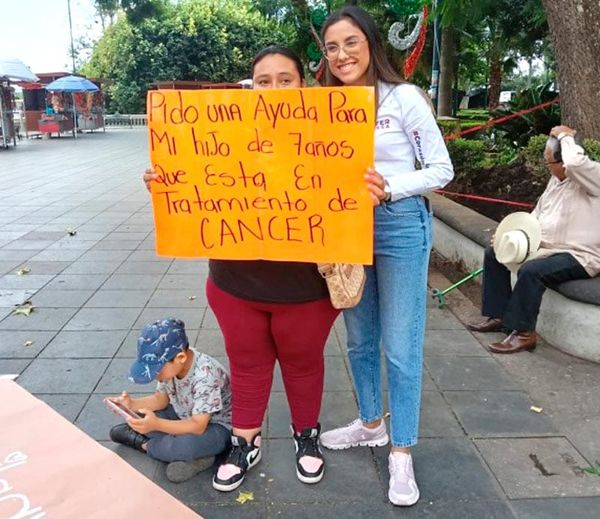 Pido una Ayuda Para
Mi hijo de 7años
Que Esta En
Tratamiento de
CANCER